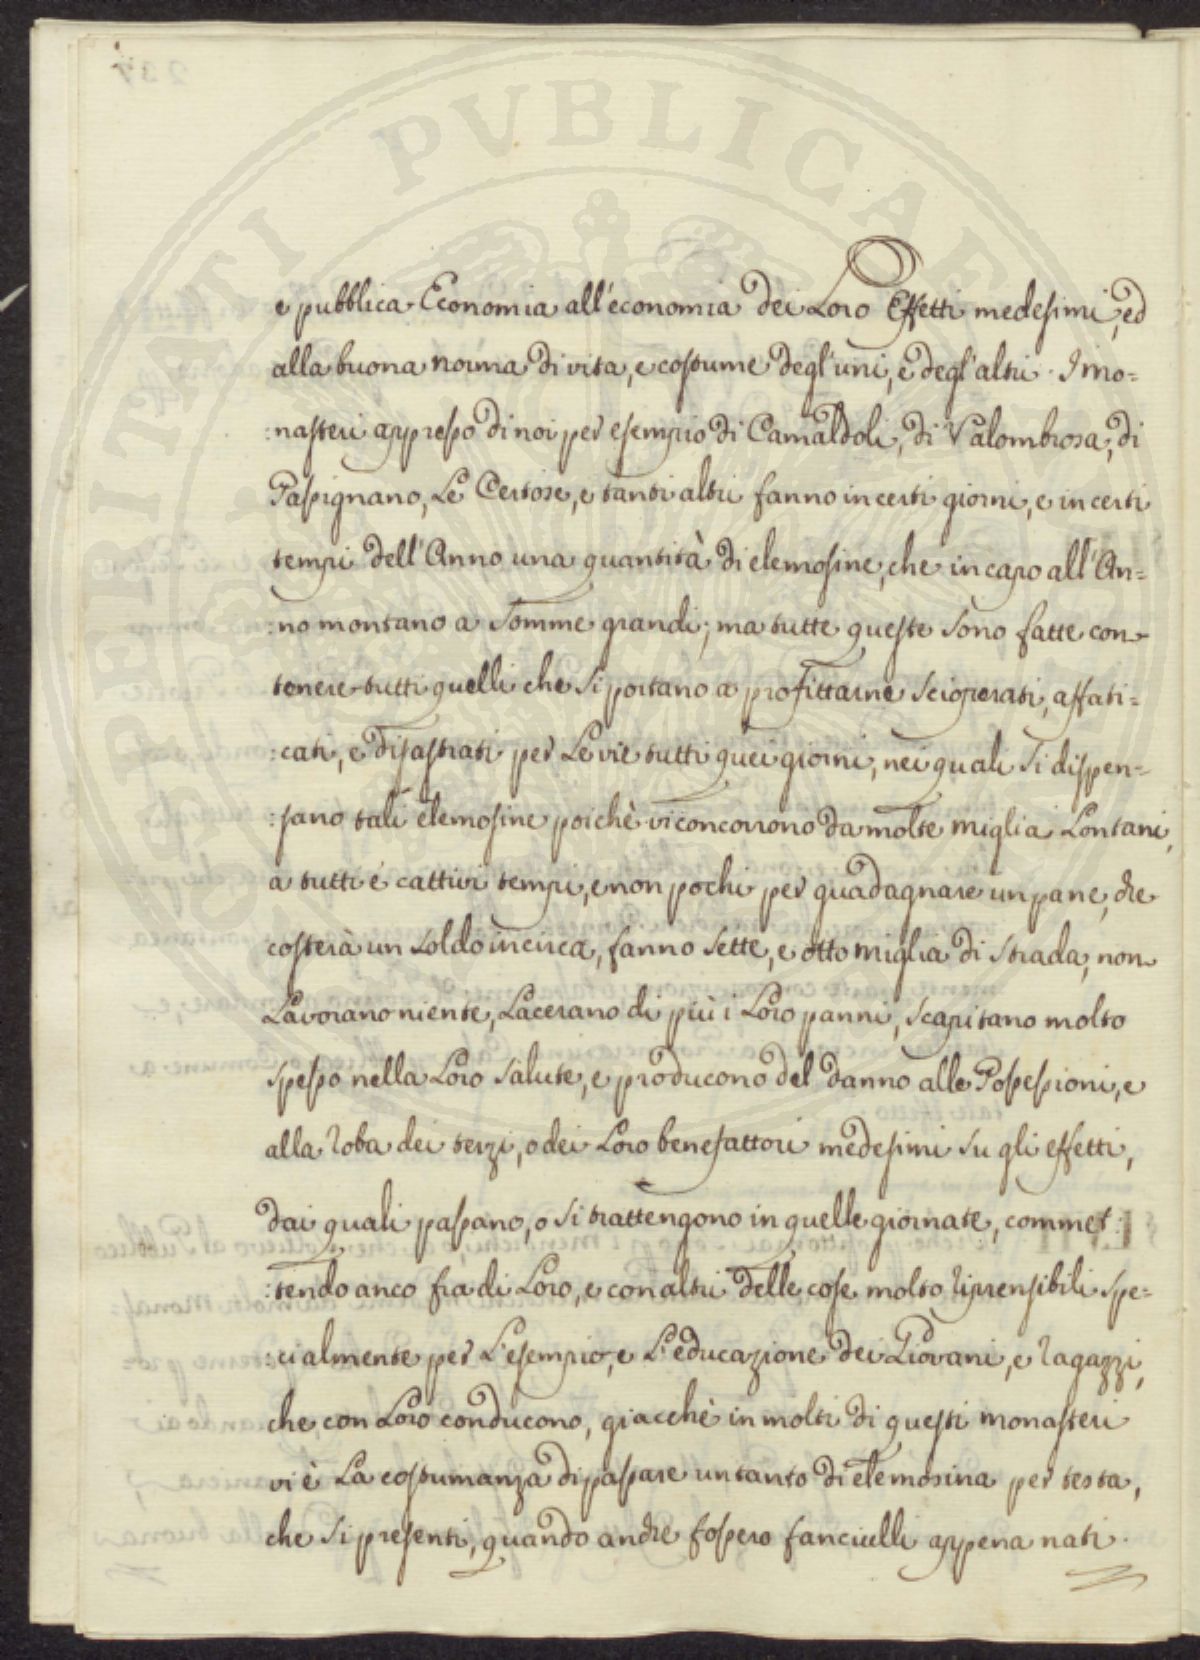 PROSPERITATI PUBLICAE
e pubblica Economia all'economia dei Loro Effetti medesimi, ed
alla buona norma di vita, e costume degl'uni, e degl'altri. I mo=
:nasteri appresso di noi per esempio di Camaldoli, di Valombrosa, di
Passignano, Le Certose, e tanti altri fanno in certi giorni, e in certi
tempi dell'Anno una quantità di elemosine, che in capo all'An=
:no montano a Somme grandi; ma tutte queste Sono fatte con
tenere tutti quelli che Si portano a profittarne Scioperati, affati=
:cati, e disastrati per Le vie tutti quei giorni, nei quali Si dispen=
:sano tali elemosine poichè vi concorrono da molte miglia Lontani,
a tutti é cattivi tempi, e non pochi per guadagnare un pane, che
costerà un Soldo incirca, fanno Sette, e otto miglia di Strada, non
Lavorano niente, Lacerano di più i Loro panni, Scapitano molto
Spesso nella Loro Salute, e producono del danno alle Possessioni, e
alla Roba dei terzi, o dei Loro benefattori medesimi Su gli effetti,
dai quali passano, o Si trattengono in quelle giornate, commet:
:tendo anco fra di Loro, e con altri delle cose molto Riprensibili Spe=
:cialmente per L'esempio, e L'educazione dei Giovani, e Ragazzi,
che con Loro conducono, giacchè in molti di questi monasteri
vi è La costumanza di passare un tanto di elemosina per testa,
che Si presenti, quando anche fossero fanciulli appena nati.